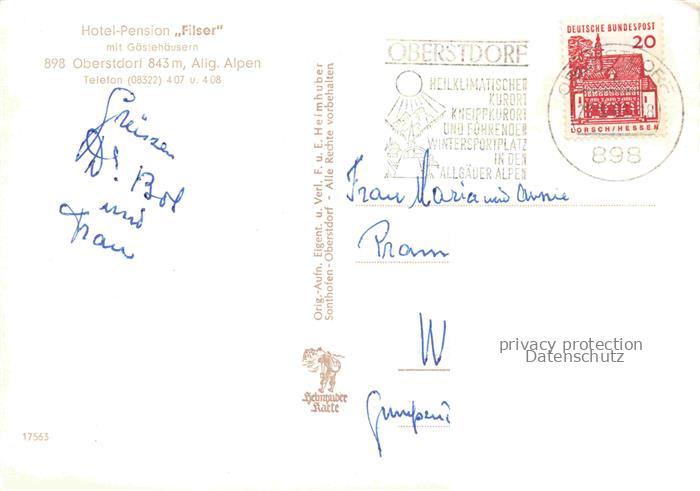 Hotel-Pension „Filser"
mit Gästehäusern
898 Oberstdorf 843 m, Allg. Alpen
Telefon (08322) 4 07 u. 4 08
Grüssen
Dr. Bot
und
Frau
17563
Orig.-Aufn. Eigent. u. Verl. F. u. E. Heimhuber
Sonthofen-Oberstdorf - Alle Rechte vorbehalten
Heimhuber
Karte
OBERSTDORF
HEILKLIMATISCHER
KURORT
KNEIPPKURORT
UND FÜHRENDER
WINTERSPORTPLATZ
IN DEN
ALLGÄUER ALPEN
DEUTSCHE BUNDESPOST
20
LORSCH/HESSEN
OBERSTDORF
898
Frau Maria und
Pram
W
privacy protection
Datenschutz